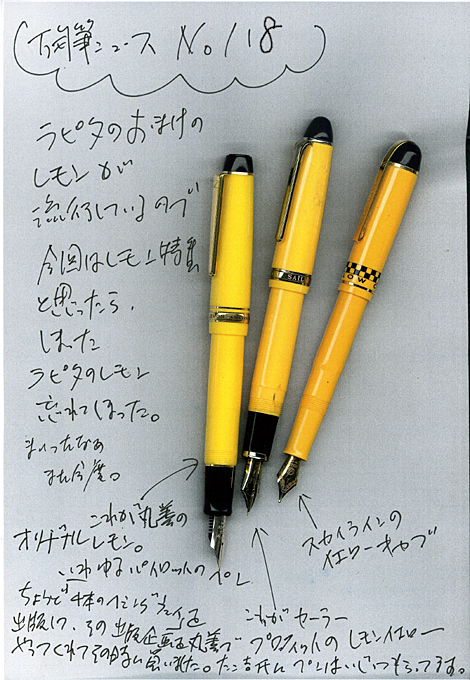 万年筆ニュース No.118
ラピタのおまけの
レモンが
流行しているので
今回はレモン特集
と思ったら、
しまった
ラピタのレモン
忘れてしまった。
まいったなあ
また今度。
これが丸善の
オリジナルレモン。
いわゆるパイロットの
スカイラインの
イエローキャブ
これがセーラー
プロフィットのレモンイエロー
ちょうど
出版して、その出版企画を丸善で
やってくれてその時に買いました。
SAIL
OW